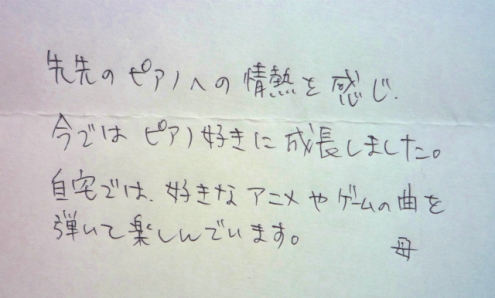 先先のピアノへの情熱を感じ、
今ではピアノ好きに成長しました。
自宅では、好きなアニメやゲームの曲を
弾いて楽しんでいます。
母